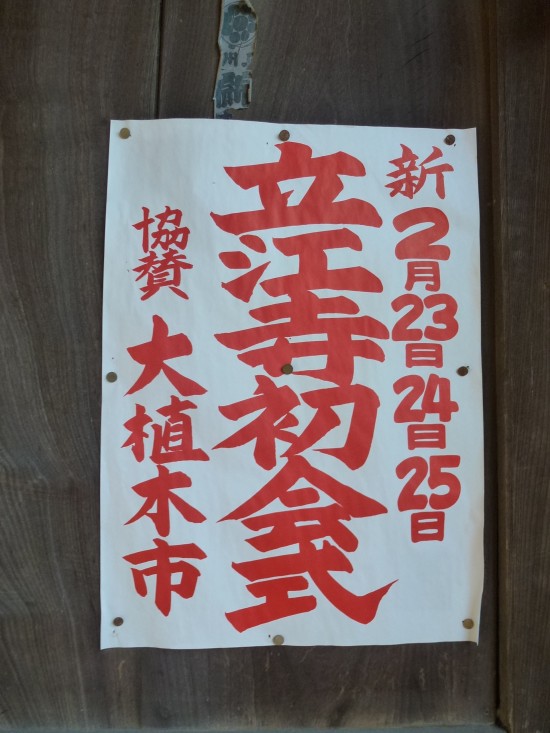 新 2月23日24日25日
立江寺初会式
協賛 大植木市